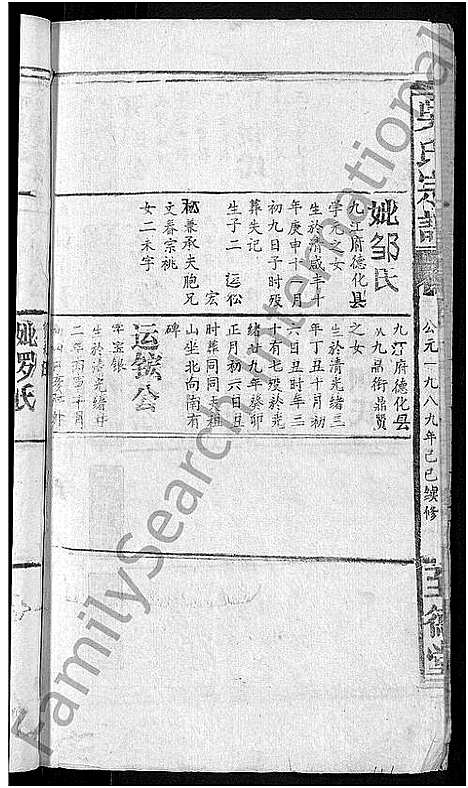 吴氏宗谱
公元一九八九年己巳续修
妣邹氏
九江府德化县
学元之女
生於清咸丰十
年庚申十月
初九日子时殁
葬失记
生子二 运松
宏
私兼承夫胞兄
文春宗祧
女二未字
九江府德化县
九品衔鼎贤
之女
生於清光绪三
年丁丑十月初
六日丑时年三
十有七殁於光
绪廿九年癸卯
正月初六日丑
时葬同夫祖
山坐北向南有
碑
运铉公
字宝银
生於清光绪廿
二年丙申十月
妣罗氏
FamilySearch International